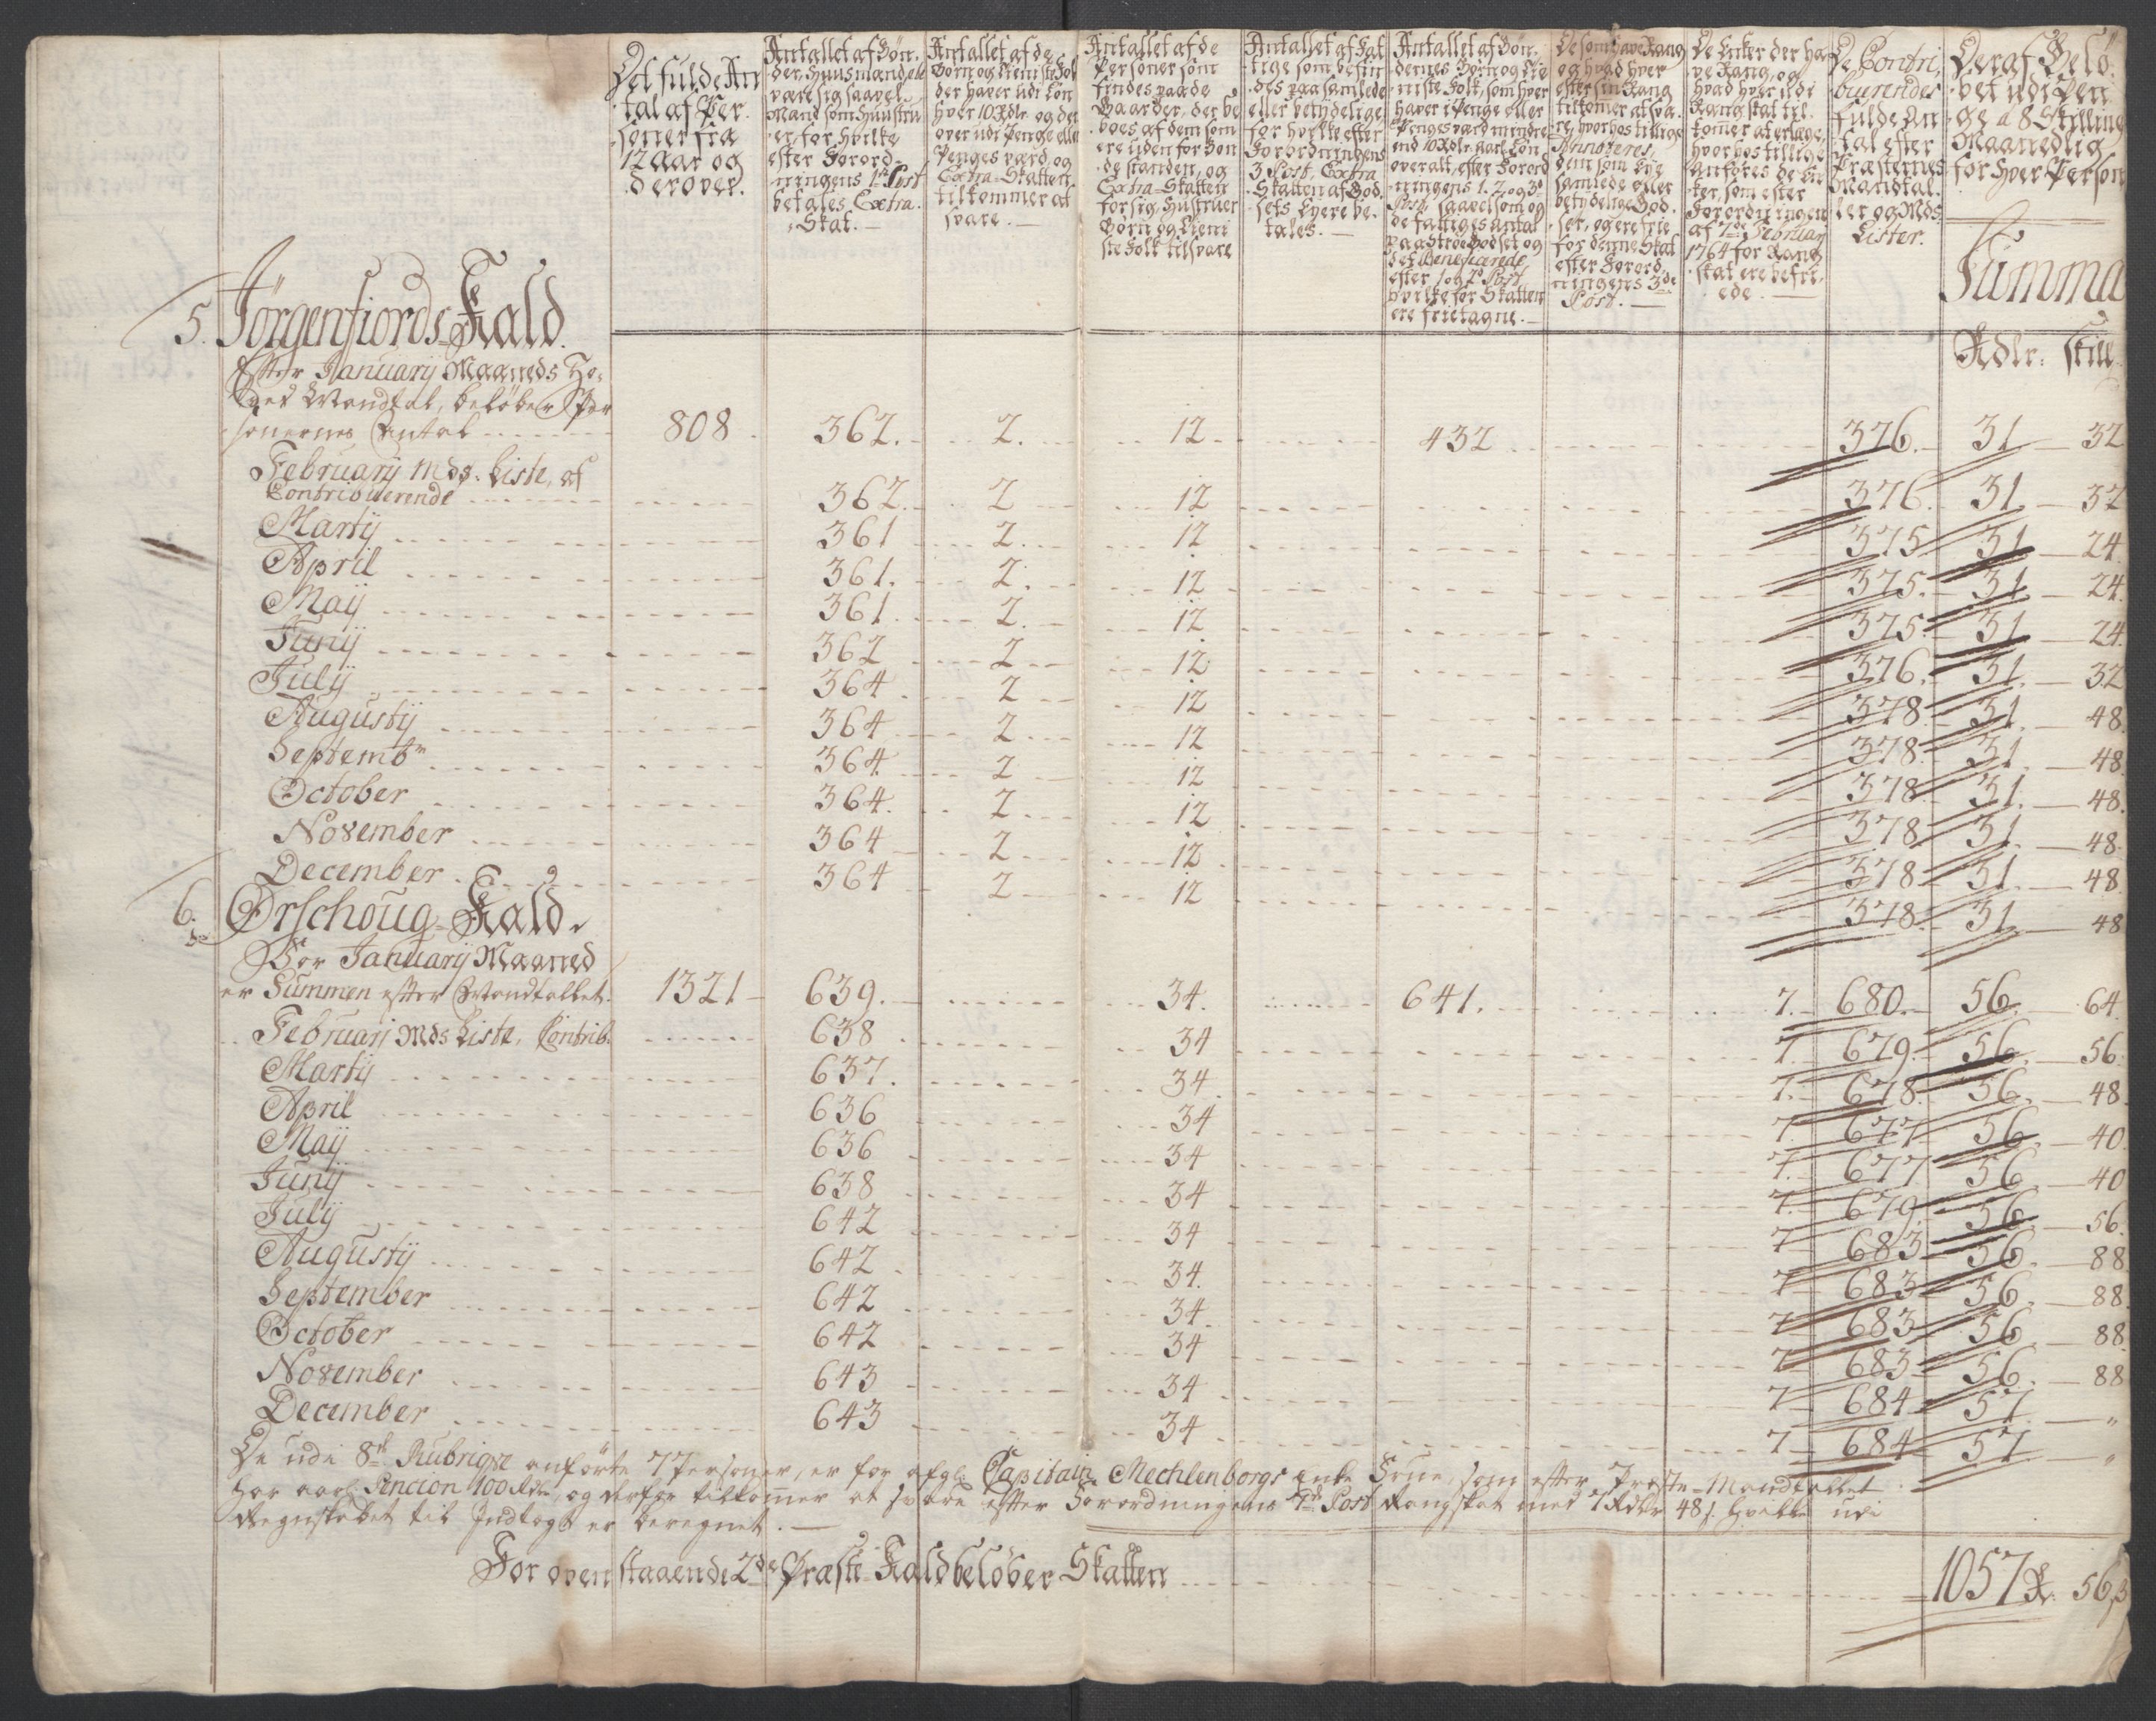 Det fulde An
tal af Per
soner fra
12 aar og
derover.
Antallet af Bøn
der, Huusmænd ale
være sig saavel
Mand som Huustru
er, for hvilke
efter Forord
ningens 1te Post
betales Extra
Skat.
Antallet af de
Børn og Tieniste Fol
der haver udi Løn
hver 10 Rdlr og der
over udi Penge eller
Penges værd, og
Extra-Skatten
tilkommer at
svare.
Antallet af de
Personer som
findes paa de
Gaarder, der be
boes af dem som
ere uden for Bon
de standen, og
Extra-Skatten
for sig, Hustruer
Børn og Tieni
ste Folk tilsvare
Antallet af Fat
tige som befin
des paa samlede
eller betydelige
for hvilke efter
Forordningens
3 Post, Extra
Skatten af God
sets Eyere be
tales.
Antallet af Bøn
dernes Børn og Tie
niste Folk, som hver
haver i Penge eller
Penges værd mindre
end 10 Rdlr. aarl. Løn
overalt, efter Forord
ningens 1. 2 og 3de
Post, saavelsom og
de fattiges Antal
paa Stroe Godset og
det Beneficerede
efter 1 og 2de Post
hvilke for Skatten
ere frietagne.
De som have Rang
og hvad hver
efter sin Rang
tilkomer at sva
re, hvorhos tillige
Annoteres,
dem som Eye
samlede eller
betydelige God
ser, og ere frie
for denne Skat
efter Forord
ningens 3de
Post.
De Enker der ha
ve Rang, og
hvad hver udi
Rang skat til
komer at erlægge,
hvorhos tillige
Anføres de En
ker, som efter
Forordningen
af 7de February
1764 for Rang
skat ere befri
ede.
De Contri
buerendes
fulde An
tal efter
Præsternes
Mandtal
ler og Mds
Lister.
Deraf Belø
bet udi Pen
ge a 8 Skilling
Maanedlig
for hver Person
Summa
Rdlr: skill
5. Jørgenfiords Kald.
Efter January Maaneds Ho
ved Mandtal, beløber Per
sonernes Antal 808 362. 2. 12 432 376. 31 32
February Mds. Liste, af
Contribuerende 362. 2 12 376. 31 32
Martij 361 2. 12 375 31 24.
April 361. 2. 12 375. 31 24.
Maij 361. 2. 12 375. 31 24.
Junij 362 2 12 376. 31. 32
Julij 364 2 12 378. 31. 48.
Augustij 364 2 12 378. 31. 48.
Septembr 364. 2 12 378. 31. 48.
October 364. 2 12 378 31. 48.
November 364 2 12 378 31. 48
December 364 2 12 378. 31 48
6. Ørschoug-Kald.
For January Maaned
er Summen efter Mandtallet. 1321 639. 34. 641. 7. 680. 56. 64.
Februarj Mds Liste, Contrib. 638 34 7. 679. 56. 56.
Martij 637. 34 7. 678. 56. 48.
April 636 34 7. 677 56. 40.
Maij 636 34 7. 677 56. 40
Junij 638 34 7. 679. 56. 56.
Julij 642 34 7 683 56. 88
Augustij 642 34. 7 683 56. 88.
September 642 34. 7 683 56. 88
October 642 34 7 683 56. 88
November 643 34 7 684 57. "
December 643 34 7 684 57 "
De udi 8de Rubrique anførte 7 Personer, er for afgl: Capitain Mechlenborgs Enke Frue, som efter Præste-Mandtallet
har aarl: Pencion 100 Rdlr, og derfor tilkommer at svare efter Forordningens 7de Post Rangskat med 1 Rdlr 48 s. hvilke udi
Regnskabet til Indtægt er beregnet.
For oven staaende 2de Præste-Kald beløber Skatten 1057 R. 56 s